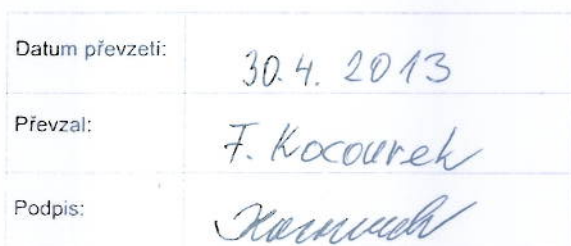 Datum převzetí: 30.4. 2013
Převzal: F. Kocourek
Podpis: